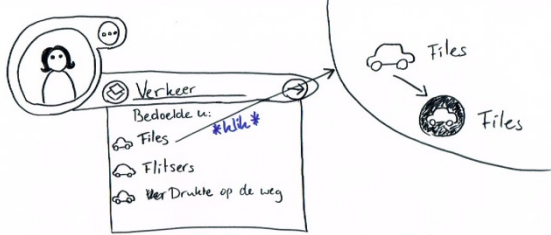 Verkeer
Bedoelde u:
Files
*klik*
Flitsers
Drukte op de weg
Files
Files